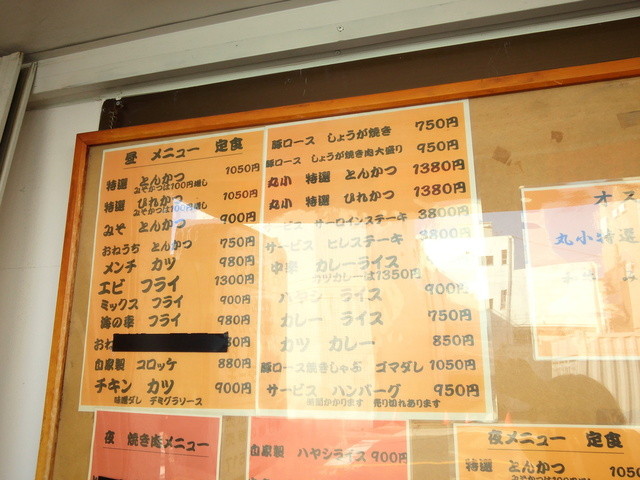 昼 メニュー 定食
特選 とんかつ 1050円
みそかつは100円増し
特選 ひれかつ 1050円
みそかつは100円増し
みそ とんかつ 900円
おねうち とんかつ 750円
メンチ カツ 980円
エビ フライ 1300円
ミックス フライ 900円
海の幸 フライ 980円
おね 80円
自家製 コロッケ 880円
チキン カツ 900円
味噌ダレ デミグラソース
豚ロース しょうが焼き 750円
豚ロース しょうが焼き肉大盛り 950円
丸小 特選 とんかつ 1380円
丸小 特選 ひれかつ 1380円
ービス サーロインステーキ 3800円
サービス ヒレステーキ 3800円
カレーライス
カツカレーは1350円
ハヤシ ライス 900円
カレー ライス 750円
カツ カレー 850円
豚ロース焼きしゃぶ ゴマダレ 1050円
サービス ハンバーグ 950円
時間かかります 売り切れあります
オス
丸小特選
夜 焼き魚メニュー
自家製 ハヤシライス 900円
夜メニュー 定食
特選 とんかつ 1050
みそかつは100円増し